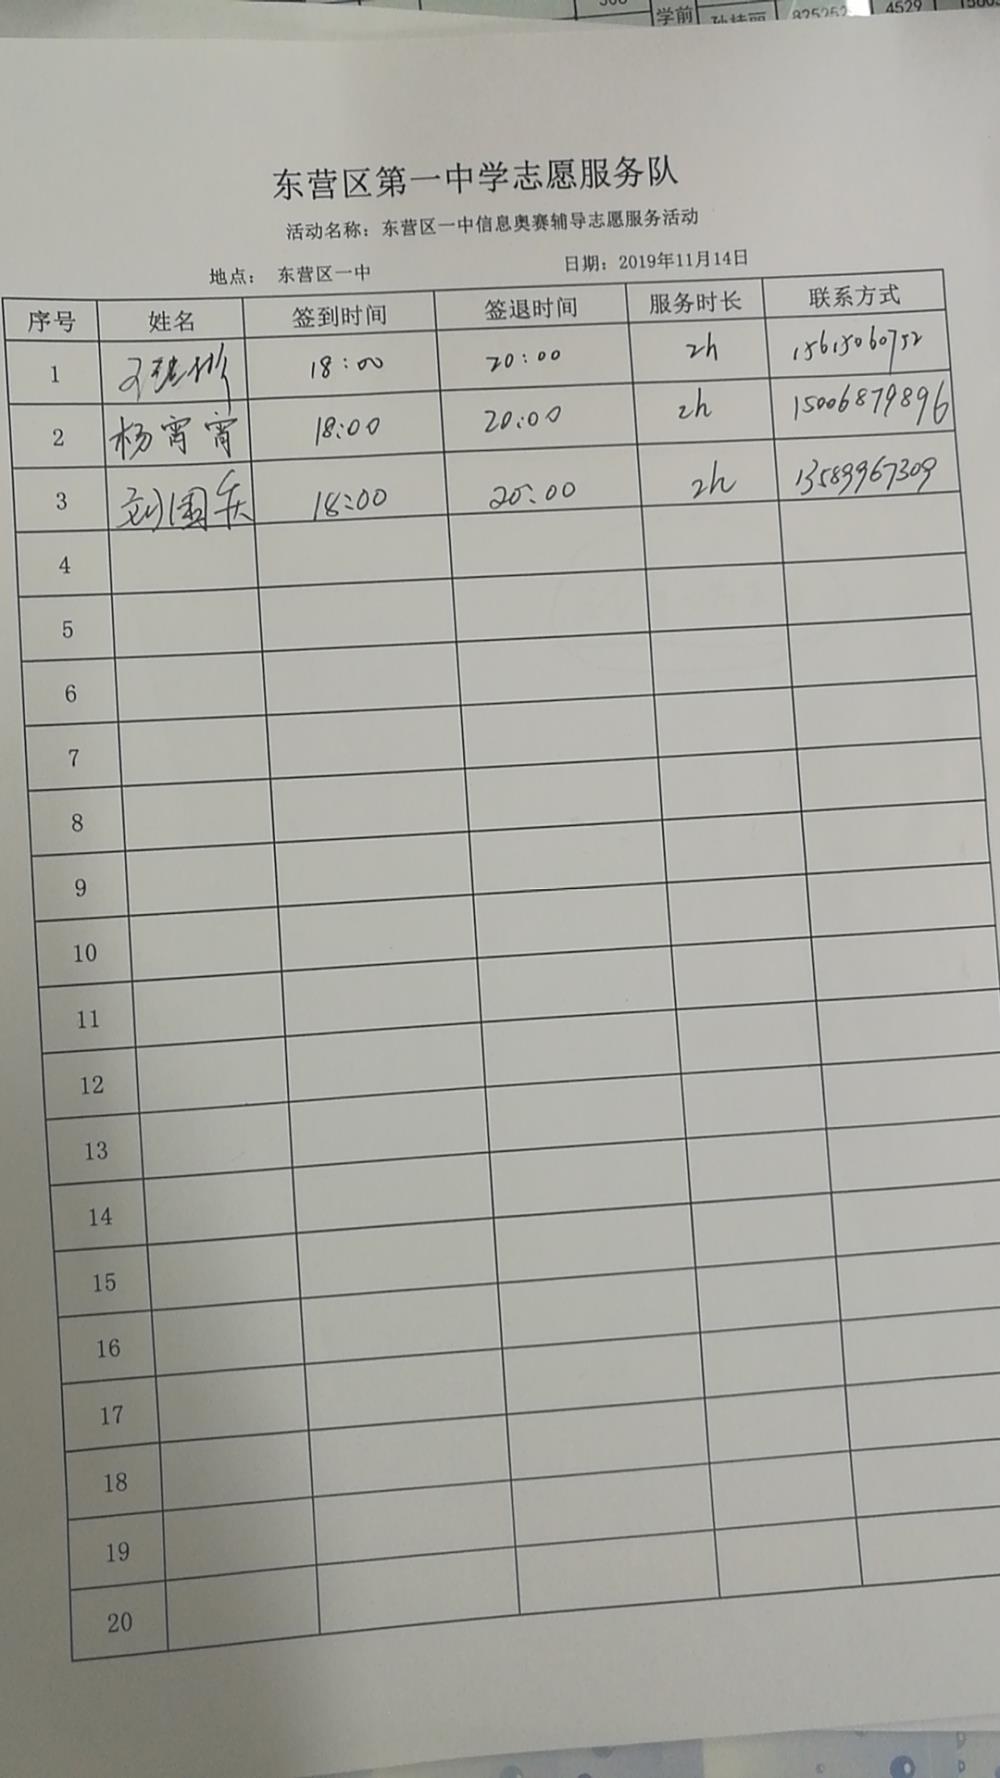 学前
4529
东营区第一中学志愿服务队
活动名称：东营区一中信息奥赛辅导志愿服务活动
地点： 东营区一中 日期：2019年11月14日
序号 姓名 签到时间 签退时间 服务时长 联系方式
1 18:00 20:00 2h 15615060752
2 杨宵宵 18:00 20:00 2h 15006879896
3 刘国庆 18:00 20:00 2h 13589967309
4
5
6
7
8
9
10
11
12
13
14
15
16
17
18
19
20